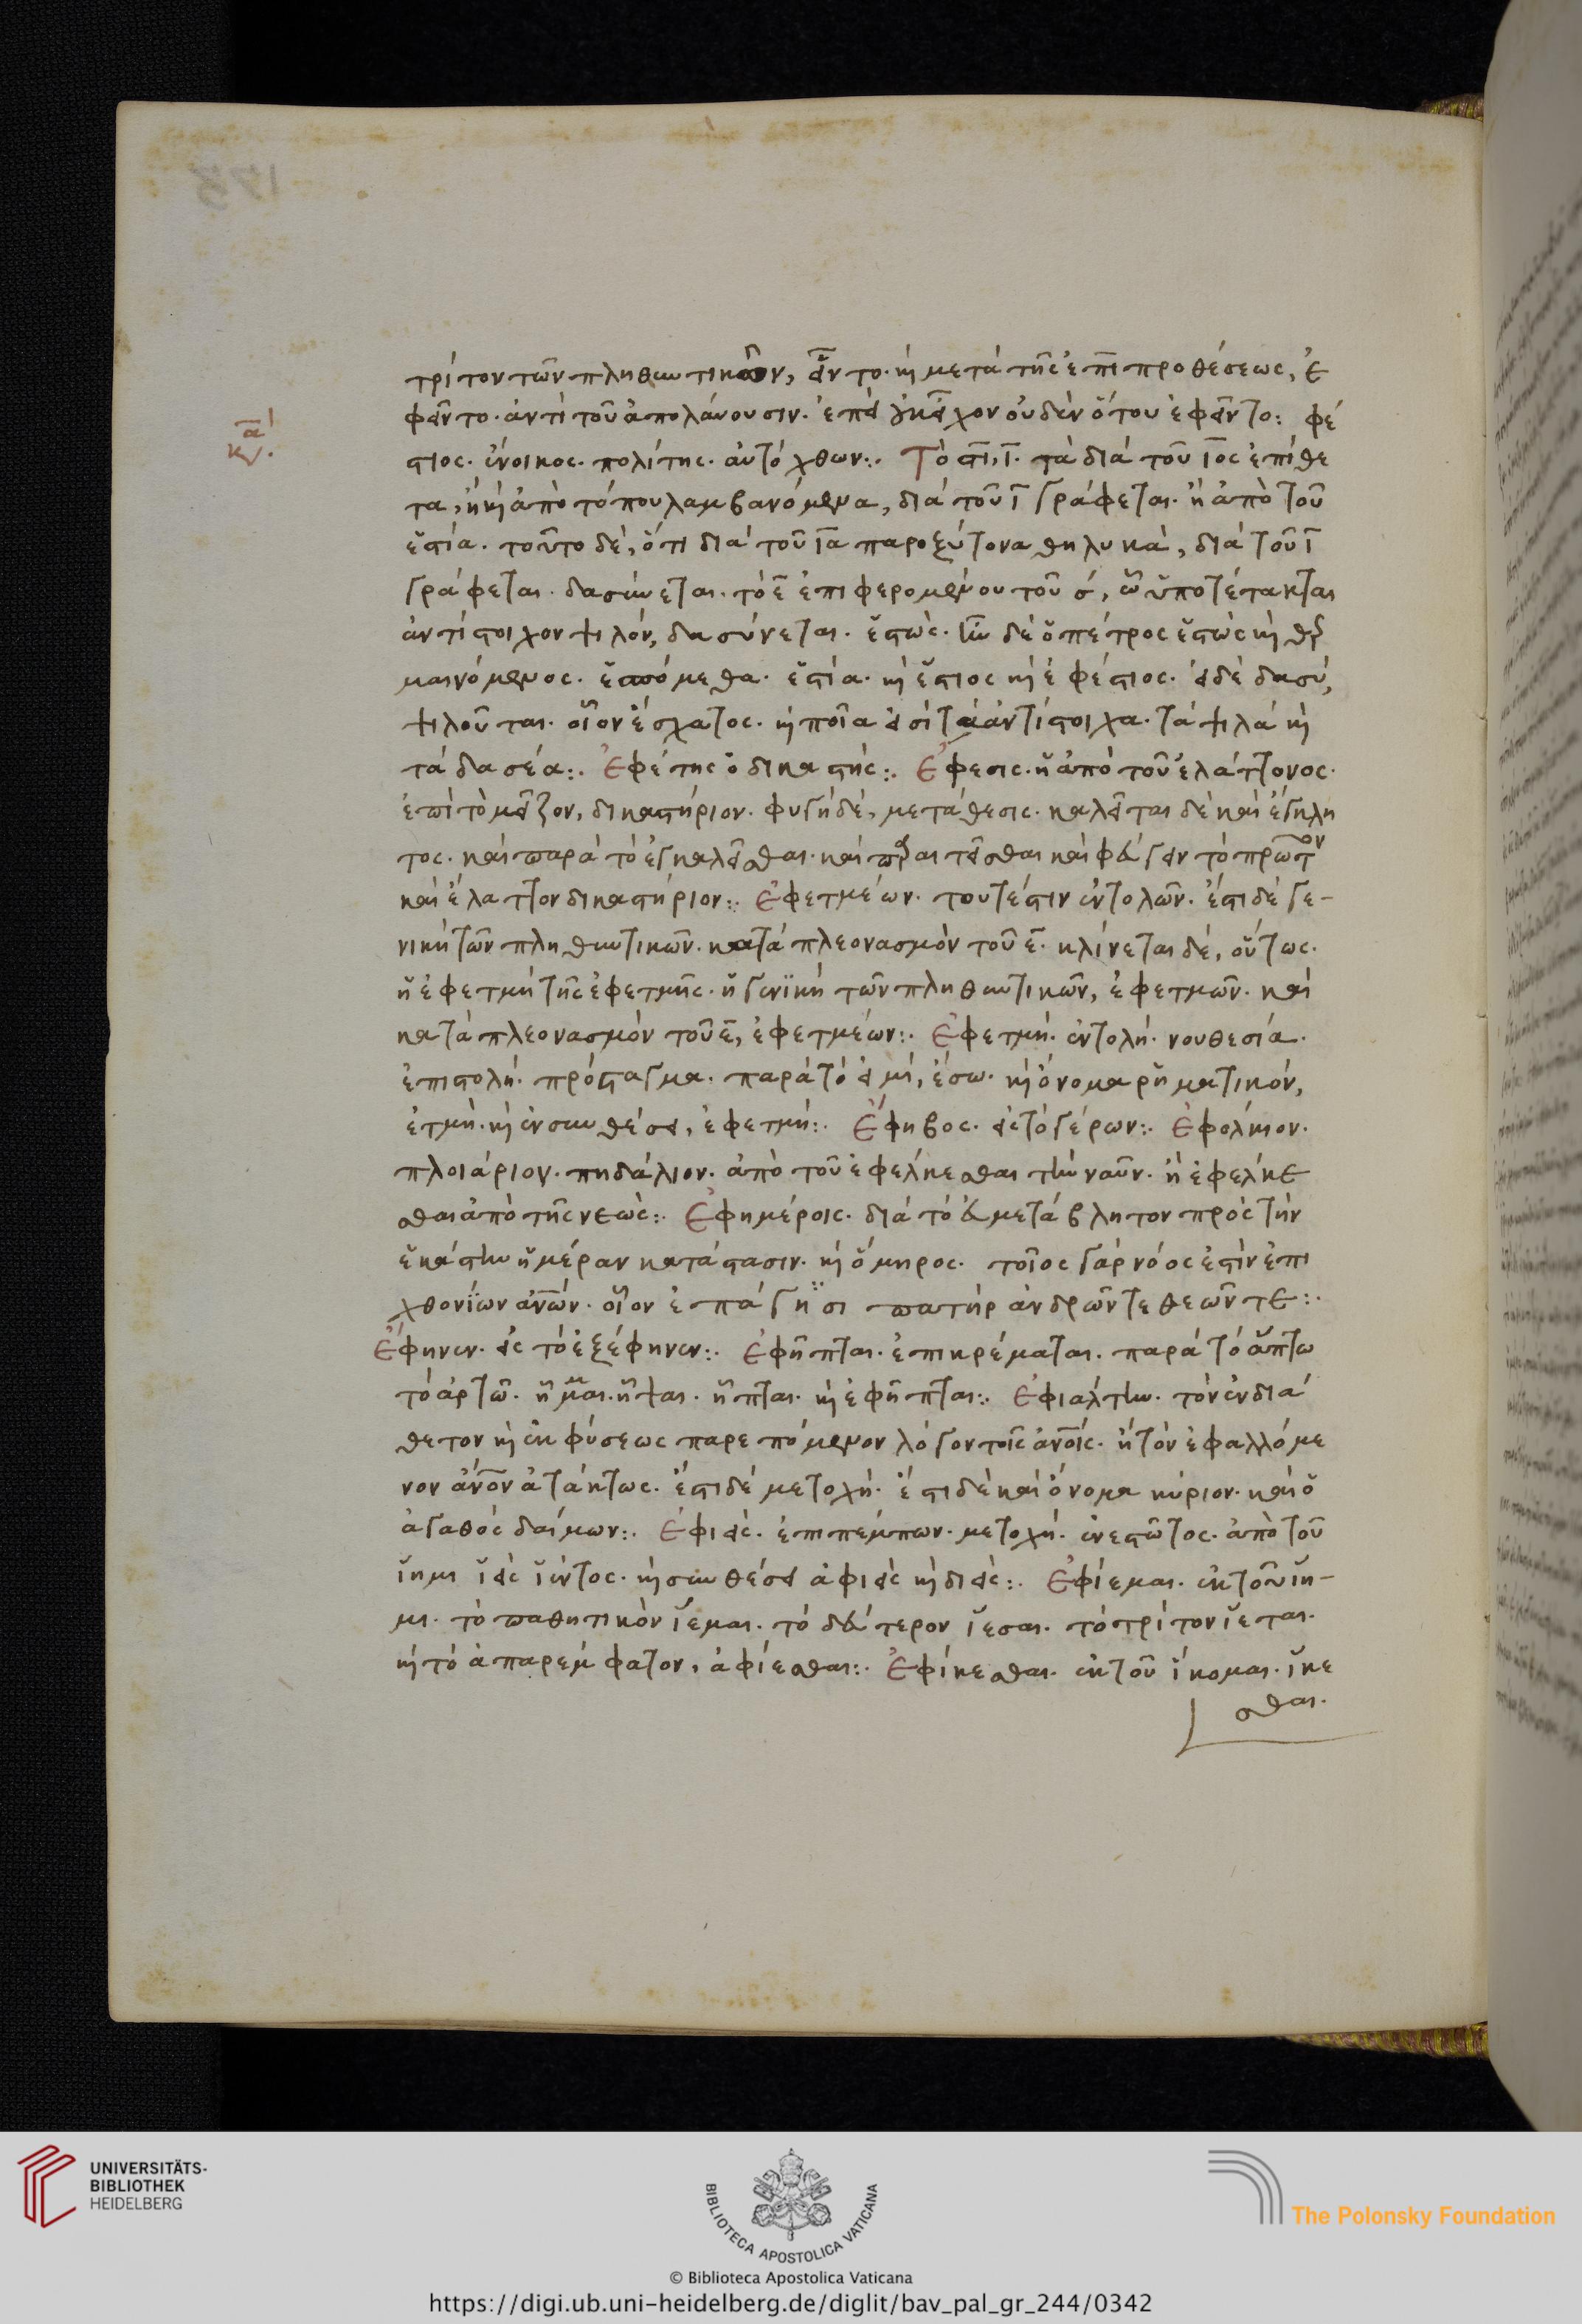 τρίτον τῶν πληθυντικῶν, εἶντο. κὴ μετὰ τῆς ἐπὶ προθέσεως, ἐ
φεῖντο. ἀντὶ τοῦ ἀπολάυουσιν. ἐπεὶ οὐδὲν ὅτου ἐφεῖντο: φέ
στιος. ἔνοικος. πολίτης. αὐτόχθων:. Τὸ στι, ῑ. τὰ διὰ τοῦ ῑος ἐπίθε
τα, ἢ κὴ ἀπὸ τόπου λαμβανόμενα, διὰ τοῦ ῑ γράφεται. ἢ ἀπὸ τοῦ
ἑστία. τοῦτο δὲ, ὅτι διὰ τοῦ ῑα παροξύτονα θηλυκὰ, διὰ τοῦ ῑ
γράφεται. δασύνεται. τὸ ε̄ ἐπιφερομένου τοῦ σ, ὧ ὑποτέτακται
ἀντίστοιχον ψιλόν, δασύνεται. ἑστώς. ἦν δὲ ὁ πέτρος ἑστὼς κὴ θερ
μαινόμενος. ἑσπόμεθα. ἑστία. κὴ ἕστιος κὴ ἐφέστιος. εἰ δὲ δασύ,
ψιλοῦται. οἷον ἔσχατος. κὴ ποῖα εἰσὶ τὰ ἀντίστοιχα. τὰ ψιλὰ κὴ
τὰ δασέα:. Ἐφέτης ὁ δικαστής:. Ἔφεσις. ἡ ἀπὸ τοῦ ἐλάττονος.
ἐπὶ τὸ μεῖζον, δικαστήριον. φυγὴ δὲ, μετάθεσις. καλεῖται δὲ καὶ ἔγκλη
τος. καὶ παρὰ τὸ ἐγκαλεῖσθαι. καὶ παραιτεῖσθαι καὶ φεύγειν τὸ πρῶτον
καὶ ἔλαττον δικαστήριον:. Ἐφετμέων. τουτέστιν ἐντολῶν. ἔστι δὲ γε-
νικὴ τῶν πληθυντικῶν. κατὰ πλεονασμὸν τοῦ ε̄. κλίνεται δὲ, οὕτως.
ἡ ἐφετμὴ τῆς ἐφετμῆς. ἡ γενϊκὴ τῶν πληθυντικῶν, ἐφετμῶν. καὶ
κατὰ πλεονασμὸν τοῦ ε̄, ἐφετμέων:. Ἐφετμή. ἐντολή. νουθεσία.
ἐπιστολή. πρόσταγμα. παρὰ τὸ εἰμὶ, ἔσω. κὴ ὄνομα ῥηματικόν,
ἐτμή. κὴ ἐν συνθέσει, ἐφετμή:. Ἔφηβος. εἰς τὸ γέρων:. Ἐφολκιον.
πλοιάριον. πηδάλιον. ἀπὸ τοῦ ἐφέλκεσθαι τὴν ναῦν. ἢ ἐφέλκε
σθαι ἀπὸ τῆς νεὼς:. Ἐφημέροις. διὰ τὸ εὐμετάβλητον πρὸς τὴν
ἑκάστην ἡμέραν κατάστασιν. κὴ ὅμηρος. τοῖος γὰρ νόος ἐστὶν ἐπι
χθονϊων ἀνῶν. οἷον ἐπάγηϊσι πατὴρ ἀνδρῶν τε θεῶν τε:.
Ἔφηνεν. εἰς τὸ ἐξέφηνεν:. Ἐφῆπται. ἐπικρέμαται. παρὰ τὸ ἅπτω
τὸ ἀρτῶ. ἧμμαι. ἧψαι. ἧπται. κὴ ἐφῆπται:. Ἐφιάλτην. τὸν ἐνδιά
θετον κὴ ἐκ φύσεως παρεπόμενον λόγον τοῖς ἀνοῖς. ἢ τὸν ἐφαλλόμε
νον ἀνον ἀτάκτως. ἔστι δὲ μετοχή. ἔστι δὲ καὶ ὄνομα κύριον. καὶ ὁ
ἀγαθὸς δαίμων:. Ἐφιείς. ἐπιπέμπων. μετοχή. ἐνεστῶτος. ἀπὸ τοῦ
ἵημι ἱεὶς ἱέντος. κὴ συνθέσει ἀφιεὶς κὴ διεὶς:. Ἐφίεμαι. ἐκ τοῦ ἵη-
μι. τὸ παθητικὸν ἵεμαι. τὸ δεύτερον ἵεσαι. τὸ τρίτον ἵεται.
κὴ τὸ ἀπαρέμφατον, ἀφίεσθαι:. Ἐφίκεσθαι. ἐκ τοῦ ἵκομαι. ἵκε
σθαι.
UNIVERSITÄTS-
BIBLIOTHEK
HEIDELBERG
BIBLIOTECA APOSTOLICA VATICANA
The Polonsky Foundation
© Biblioteca Apostolica Vaticana
https://digi.ub.uni-heidelberg.de/diglit/bav_pal_gr_244/0342